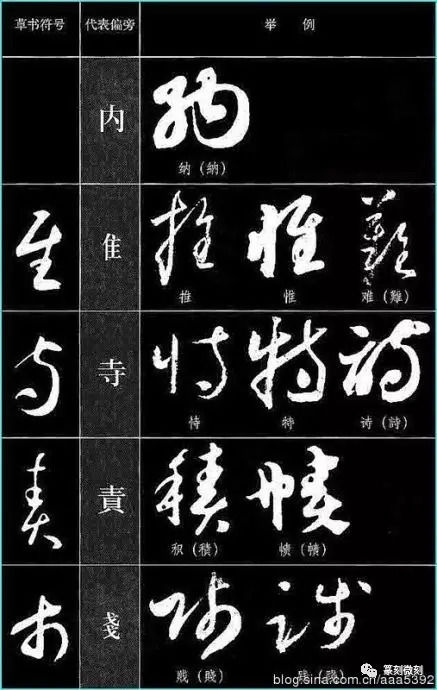 草书符号 代表偏旁 举 例
内
纳（納）
隹
推 惟 难（難）
寺
恃 特 诗（詩）
責
积（積） 帻（幘）
戔
贱（賤）
篆刻微刻
blog.sina.com.cn/aaa5392